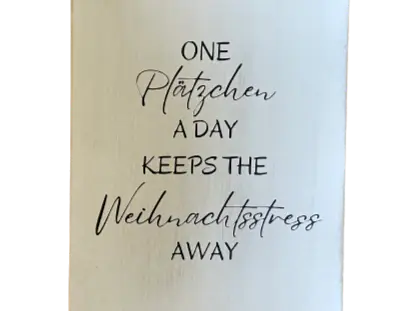 ONE
Plätzchen
A DAY
KEEPS THE
Weihnachtsstress
AWAY